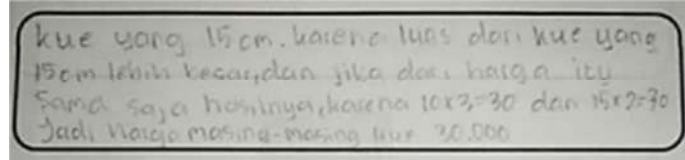 kue yang 15 cm. karena luas dari kue yang
15 cm lebih besar, dan jika dari harga itu
Sama saja hasilnya, karena 10x3=30 dan 15x2=30
Jadi harga masing-masing kue 30.000